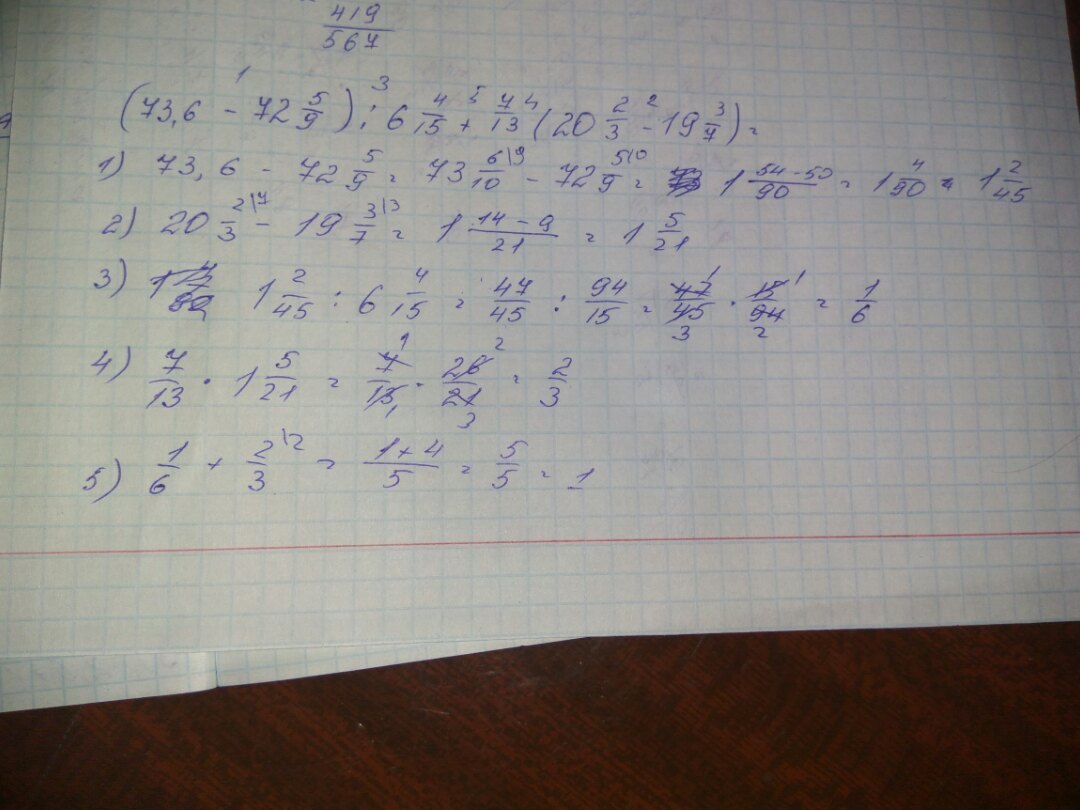 419/567
(73,6 - 72 5/9) : 6 4/15 + 7/13 (20 2/3 - 19 3/7) =
1) 73,6 - 72 5/9 = 73 6/10 - 72 5/9 = 1 54-50/90 = 1 4/90 = 1 2/45
2) 20 2/3 - 19 3/7 = 1 14-9/21 = 1 5/21
3) 1 2/45 : 6 4/15 = 47/45 : 94/15 = 47/45 · 15/94 = 1/6
4) 7/13 · 1 5/21 = 7/13 · 26/21 = 2/3
5) 1/6 + 2/3 = 1+4/5 = 5/5 = 1